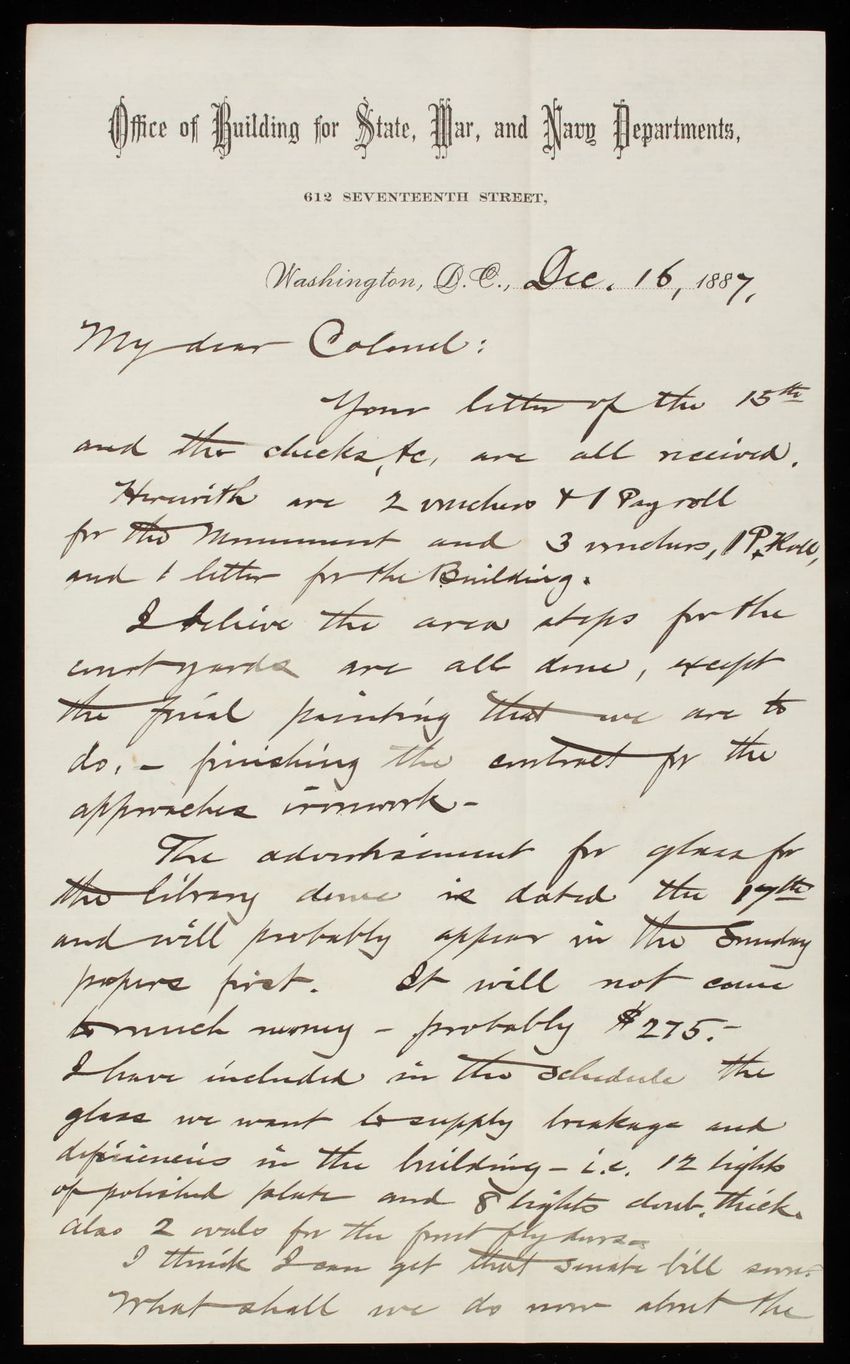 Office of Building for State, War, and Navy Departments,
612 SEVENTEENTH STREET,
Washington, D. C., Dec. 16, 1887,
My dear Colonel:
Your letter of the 15th
and the checks, &c, are all received.
Herewith are 2 vouchers & 1 Payroll
for the Monument and 3 vouchers, 1 P. Roll,
and 1 letter for the Building.
I believe the area steps for the
court yards are all done, except
the final painting that we are to
do, - finishing the contract for the
approaches ironwork -
The advertisement for glass for
the library dome is dated the 17th
and will probably appear in the Sunday
papers first. It will not come
to much money - probably $275.-
I have included in the schedule the
glass we want to supply breakage and
deficiencies in the building - i.e. 12 lights
of polished plate and 8 lights doub. thick.
also 2 ovals for the front fly doors.
I think I can get that Senate bill soon.
What shall we do now about the